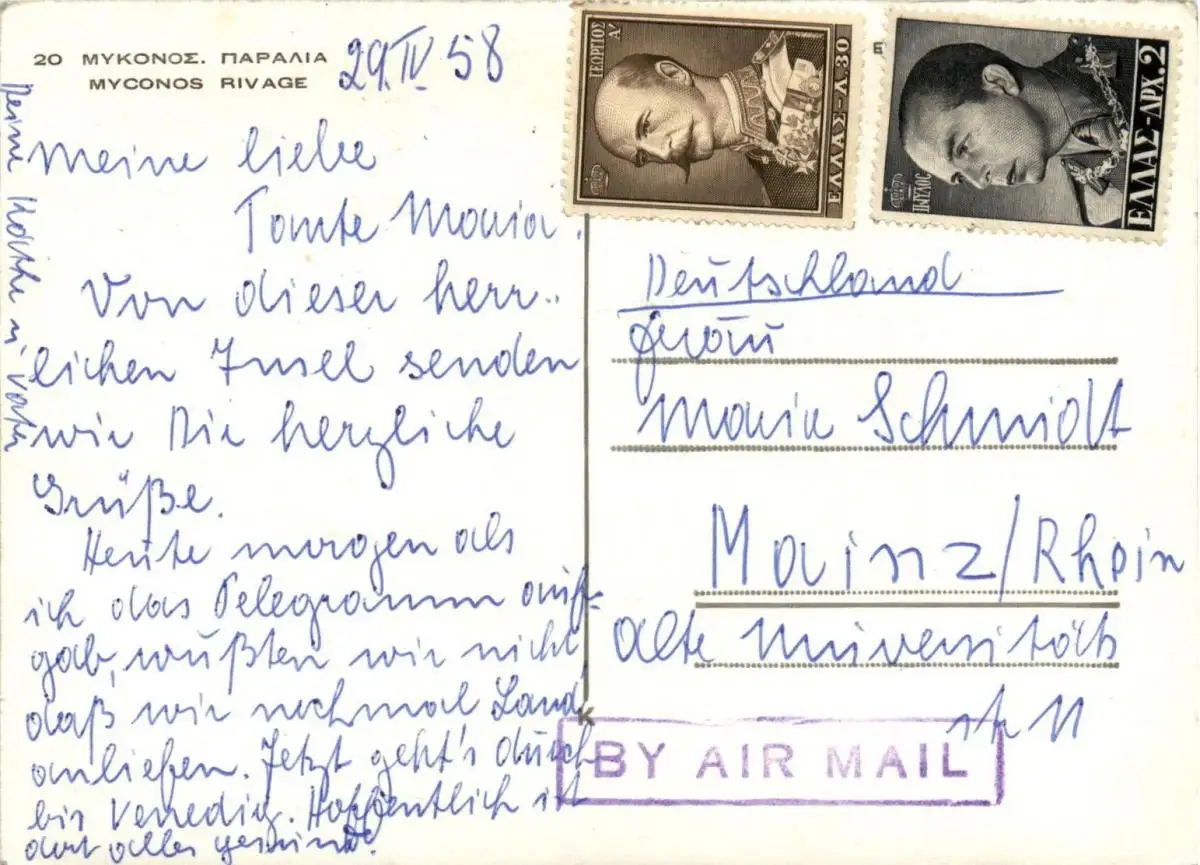 20 ΜΥΚΟΝΟΣ. ΠΑΡΑΛΙΑ
MYCONOS RIVAGE
29.IV 58
Meine liebe
Tante Maria.
Von dieser herr..
lichen Insel senden
wir Dir herzliche
Grüße.
Heute morgen als
ich das Telegramm auf-
gab, wußten wir nicht,
daß wir nochmal Land
anließen. Jetzt geht's durch
bis Venedig. Hoffentlich ist
dort alles gesund.
Deine Käthe u. Vater
ΓΕΩΡΓΙΟΣ Α'
ΕΛΛΑΣ-Λ.30
ΠΑΥΛΟΣ
ΕΛΛΑΣ-ΔΡΧ.2
Deutschland
Frau
Maria Schmidt
Mainz/Rhein
alte Universitäts
str 11
BY AIR MAIL